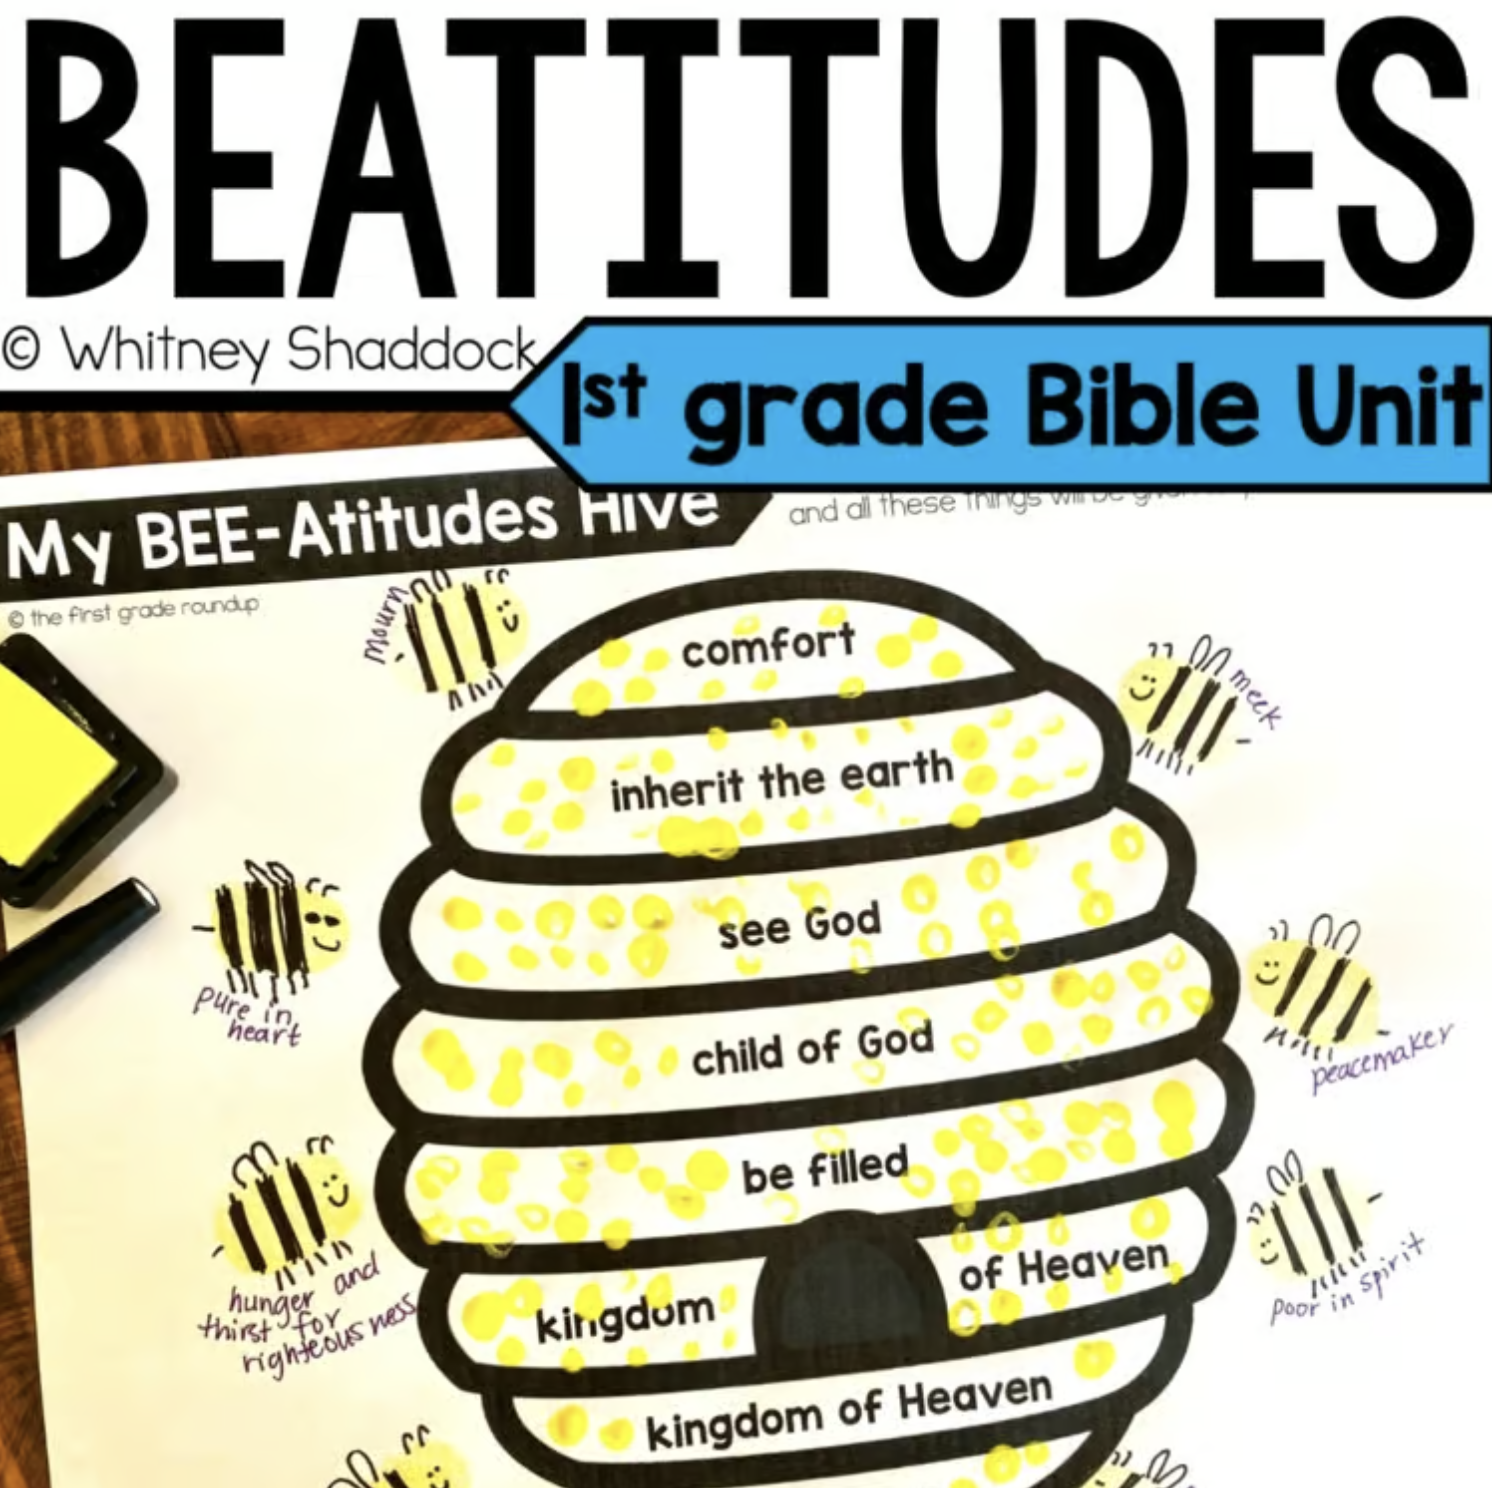 BEATITUDES
© Whitney Shaddock
1st grade Bible Unit
My BEE-Atitudes Hive
and all these things will be
© the first grade roundup
mourn
comfort
meek
inherit the earth
see God
pure in
heart
child of God
peacemaker
be filled
hunger and
thirst for
righteousness
kingdom
of Heaven
poor in spirit
kingdom of Heaven